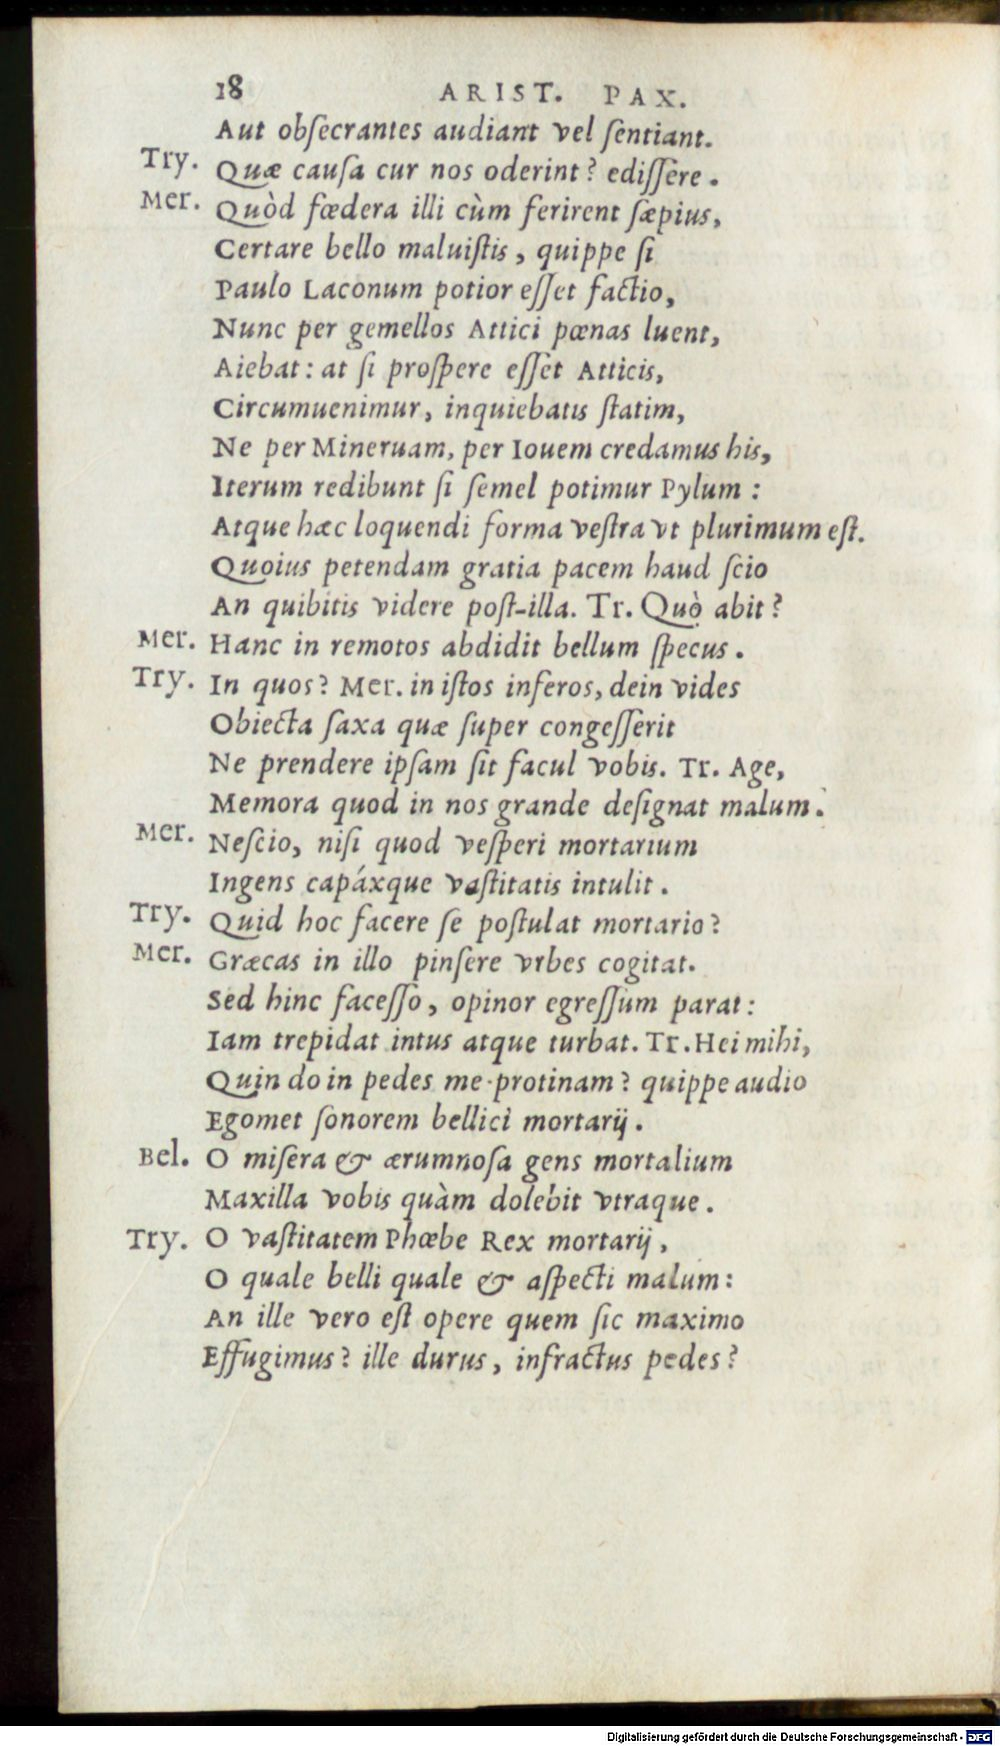 18 ARIST. PAX.
Aut obſecrantes audiant vel ſentiant.
Try. Quæ cauſa cur nos oderint? ediſſere.
Mer. Quòd fœdera illi cùm ferirent ſæpius,
Certare bello maluiſtis, quippe ſi
Paulo Laconum potior eſſet factio,
Nunc per gemellos Attici pœnas luent,
Aiebat: at ſi proſpere eſſet Atticis,
Circumuenimur, inquiebatis ſtatim,
Ne per Mineruam, per Iouem credamus his,
Iterum redibunt ſi ſemel potimur Pylum:
Atque hæc loquendi forma veſtra vt plurimum eſt.
Quoius petendam gratia pacem haud ſcio
An quibitis videre poſt-illa. Tr. Quò abit?
Mer. Hanc in remotos abdidit bellum ſpecus.
Try. In quos? Mer. in iſtos inferos, dein vides
Obiecta ſaxa quæ ſuper congeſſerit
Ne prendere ipſam ſit facul vobis. Tr. Age,
Memora quod in nos grande deſignat malum.
Mer. Neſcio, niſi quod veſperi mortarium
Ingens capáxque vaſtitatis intulit.
Try. Quid hoc facere ſe poſtulat mortario?
Mer. Græcas in illo pinſere vrbes cogitat.
Sed hinc faceſſo, opinor egreſſum parat:
Iam trepidat intus atque turbat. Tr. Hei mihi,
Quin do in pedes me protinam? quippe audio
Egomet ſonorem bellici mortarij.
Bel. O miſera & ærumnoſa gens mortalium
Maxilla vobis quàm dolebit vtraque.
Try. O vaſtitatem Phœbe Rex mortarij,
O quale belli quale & aſpecti malum:
An ille vero eſt opere quem ſic maximo
Effugimus? ille durus, infractus pedes?
Digitalisierung gefördert durch die Deutsche Forschungsgemeinschaft - DFG